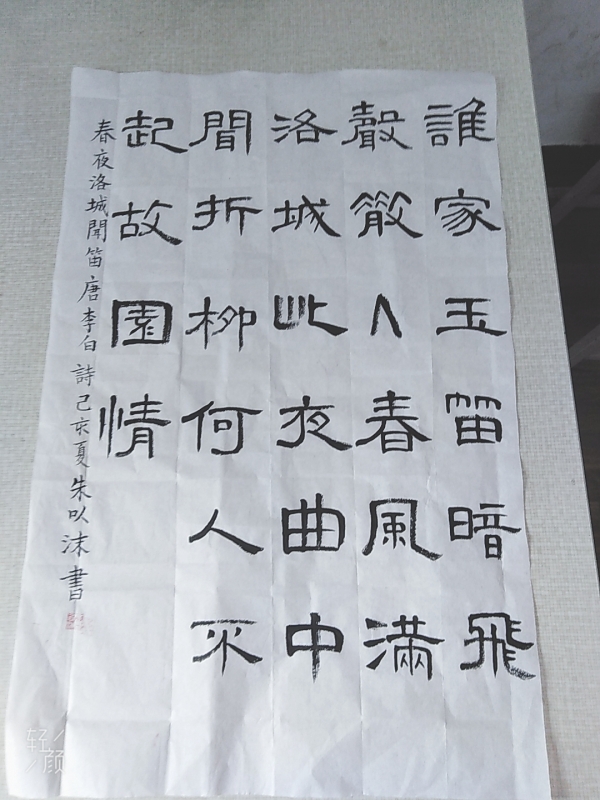 誰家玉笛暗飛
聲散入春風滿
洛城此夜曲中
聞折柳何人不
起故園情
春夜洛城聞笛唐李白詩己亥夏朱以沫書
轻颜